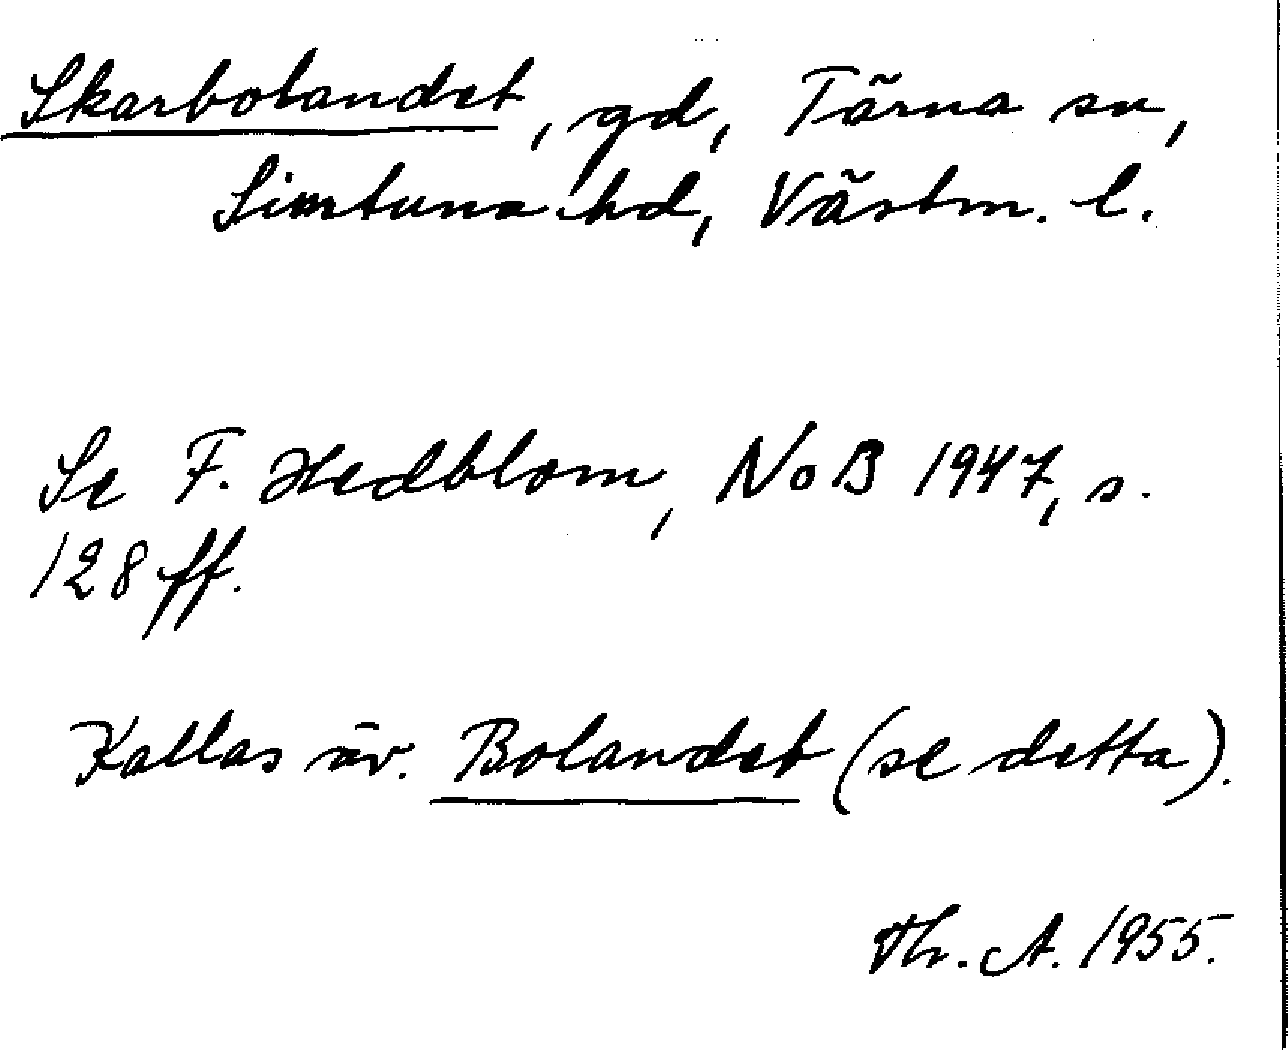 Skarbolandet, gd, Tärna sn,
Simtuna hd, Västm. l.
Se F. Hedblom, NoB 1947, s.
128 ff.
Kallas äv. Bolandet (se detta).
Th. A. 1955.